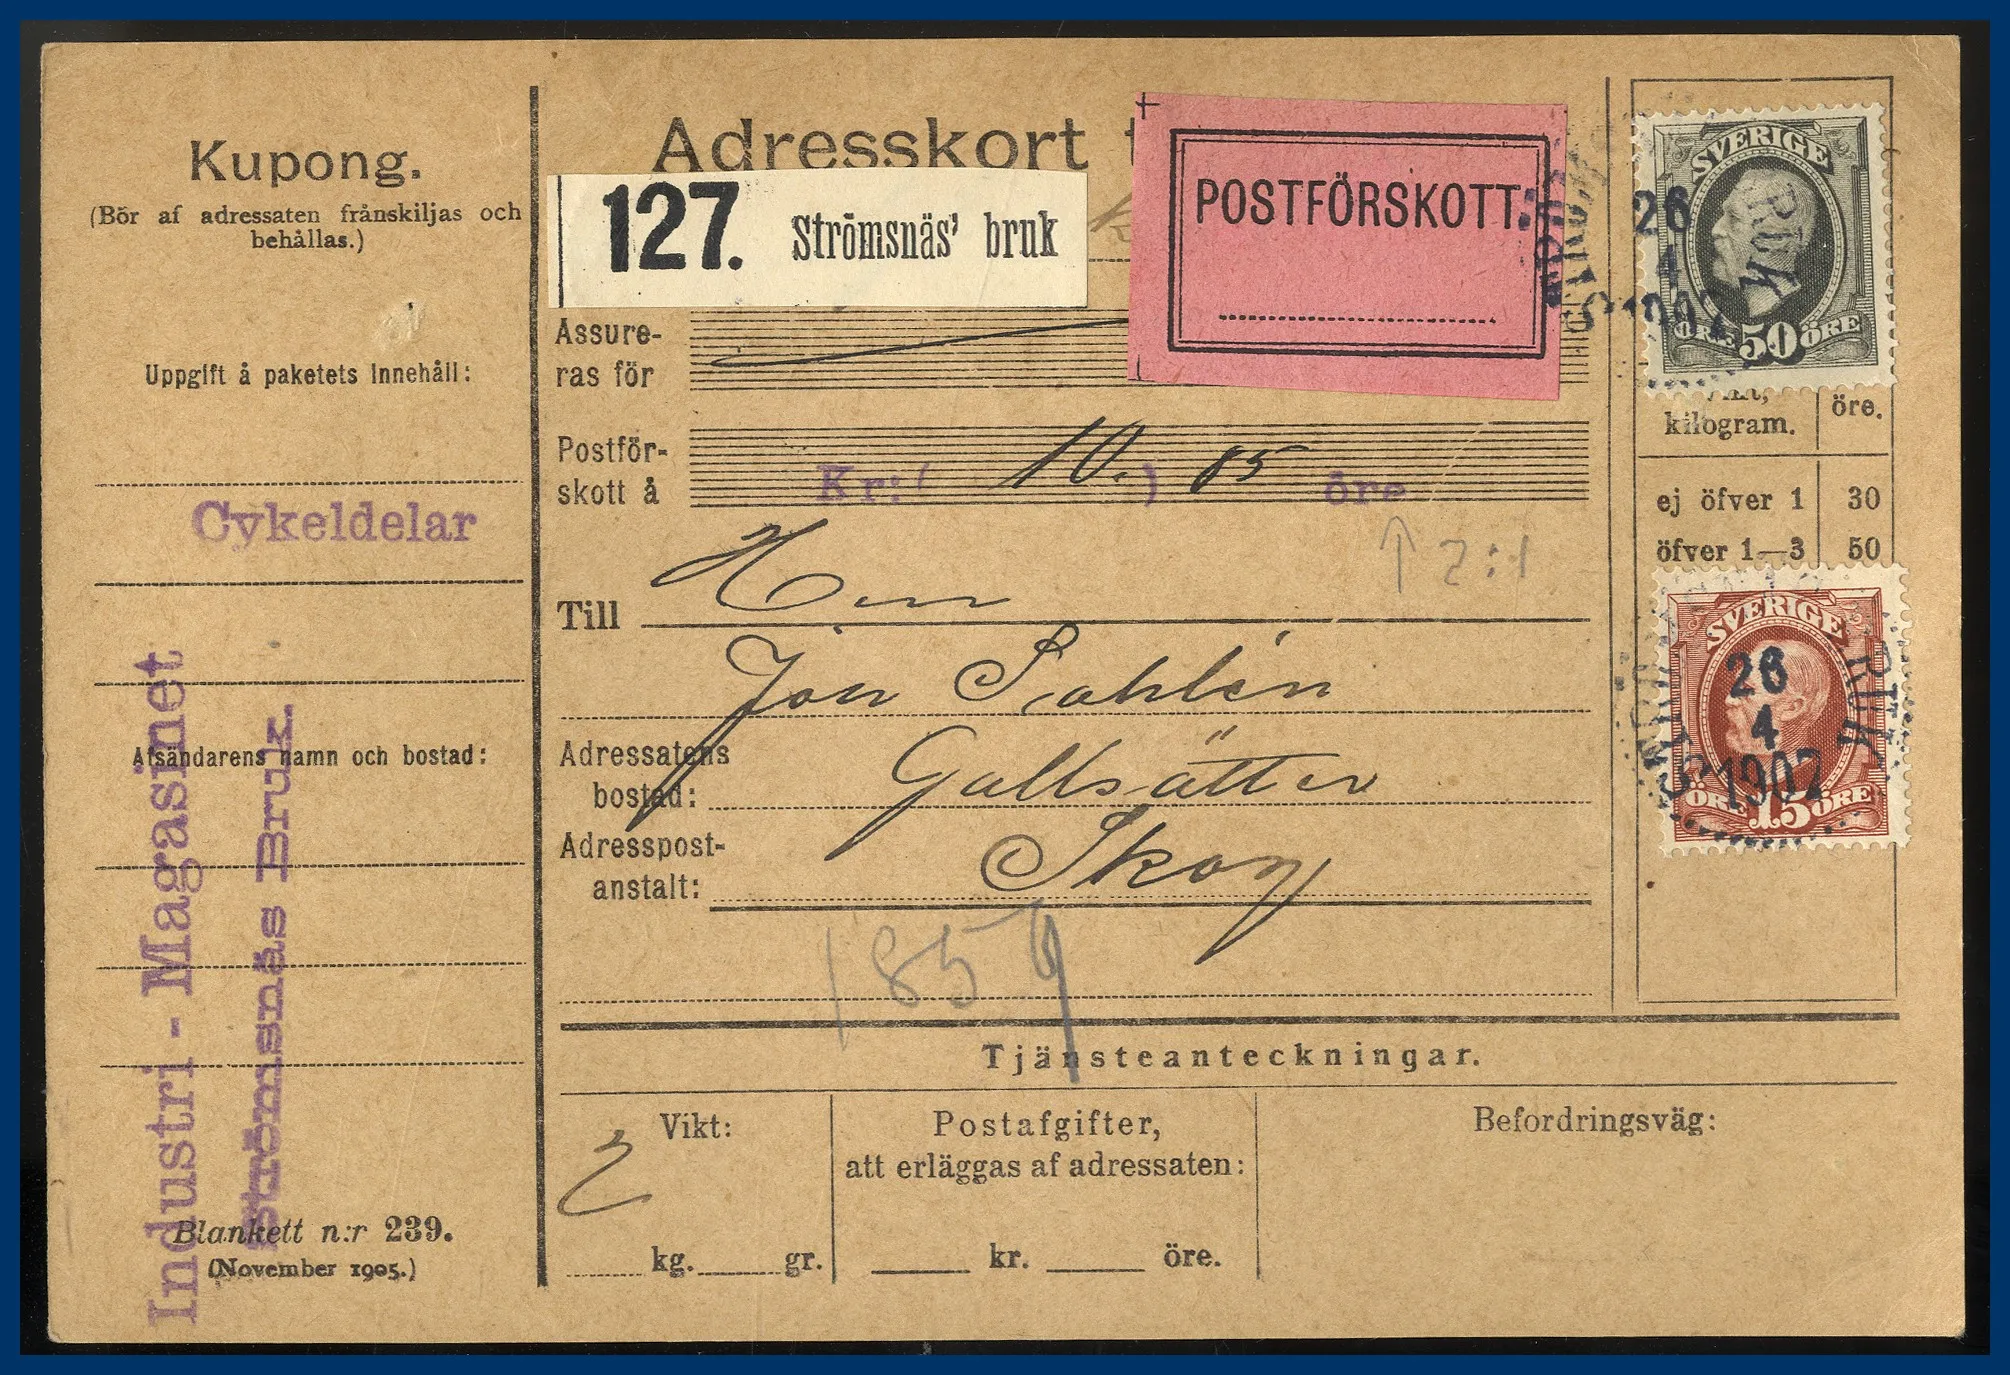 Kupong.
(Bör af adressaten frånskiljas och
behållas.)
Uppgift å paketets innehåll:
Cykeldelar
Afsändarens namn och bostad:
Industri - Magasinet
Strömsnäs Bruk.
Blankett n:r 239.
(November 1905.)
Adresskort t
127. Strömsnäs' bruk
POSTFÖRSKOTT.
Assure-
ras för
Postför-
skott å
Kr: ( 10. ) 85 öre
↑ 2:1
Till Herr
Jon Sahlén
Adressatens
bostad: Gallsätter
Adresspost-
anstalt: Skog
1859
Tjänsteanteckningar.
Vikt:
2
kg. gr.
Postafgifter,
att erläggas af adressaten:
kr. öre.
Befordringsväg:
SVERIGE
ÖRE 50 ÖRE
26
4
1907
BRUK
kilogram. öre.
ej öfver 1 30
öfver 1—3 50
SVERIGE
ÖRE 15 ÖRE
26
4
1907
BRUK